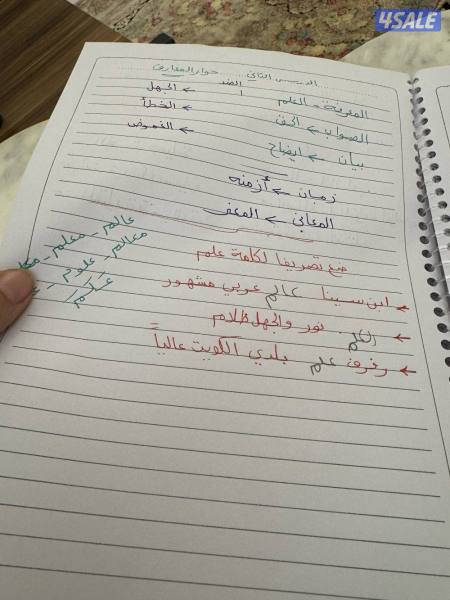 4SALE
الدرس الثاني حوار المعارف
الضد
المعرفة - العلم ← الجهل
الصواب ← الحق ← الخطأ
بيان ← ايضاح ← الغموض
زمان ← أزمنه
المعاني ← المعنى
ضع تصريفا لكلمة علم
عالم - معلم -
معالم - علوم -
عَلَم
← ابن سينا عالم عربي مشهور
← العلم نور والجهل ظلام
← رفرف علم بلدي الكويت عالياً